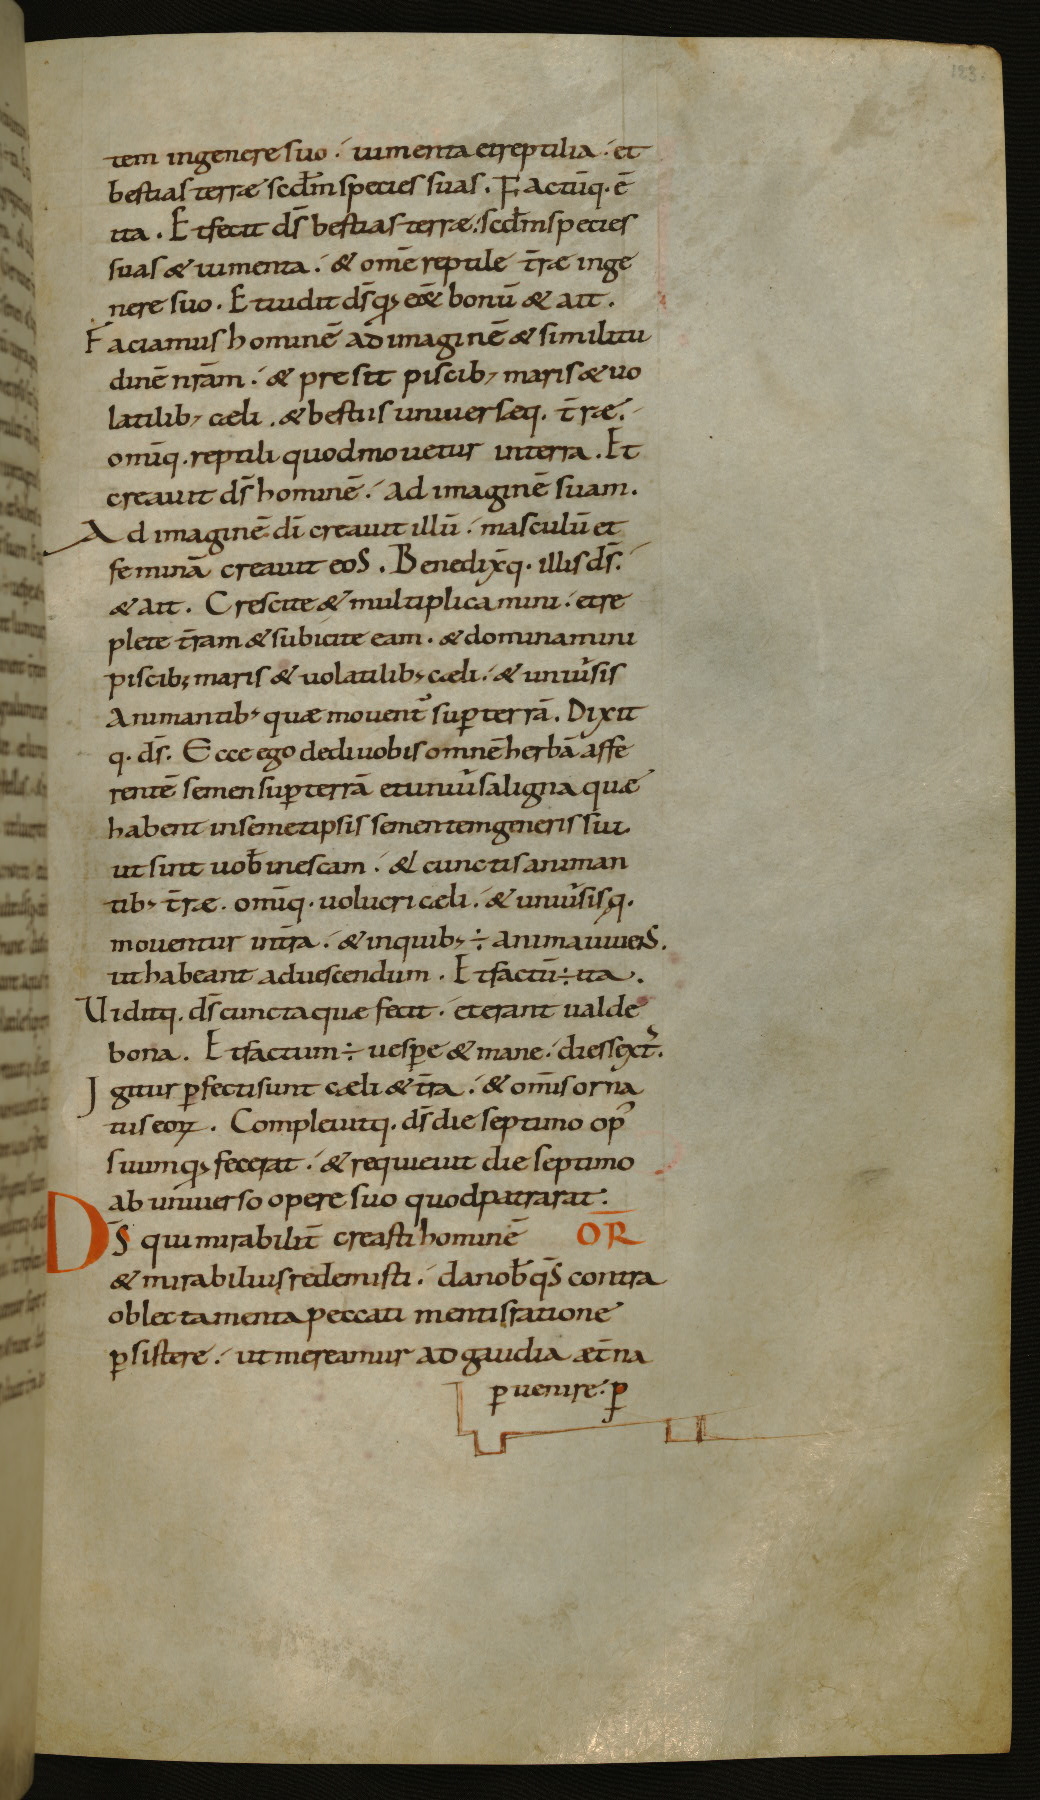 183.
tem ingenere suo . iumenta et reptilia . et
bestias terræ scdm̄ species suas . Factūq. ē
ita . Et fecit ds̄ bestias terræ . scdm̄ species
suas & iumenta . & omē reptile tr̄æ inge
nere suo . Et uidit ds̄ qđ eēt bonū & ait .
Faciamus hominē ad imaginē & similitu
dinē nr̄am . & presit piscib; maris & uo
latilib; cæli . & bestiis uniuersæq. tr̄æ .
omīq. reptili quod mouetur interra . Et
creauit ds̄ hominē . Ad imaginē suam .
Ad imaginē dī creauit illū . masculū et
feminā creauit eos . Benedixq̄. illis ds̄ .
& ait . Crescite & multiplicamini . et re
plete tr̄am & subicite eam . & dominamini
piscib; maris & uolatilib; cæli . & uniu̾sis
Animantib; quæ mouent̾ sup̱ terrā . Dixit
q. ds̄ . Ecce ego dedi uobis omnē herbā affe
rentē semen sup̱ terrā et uniu̾sa ligna quæ
habent insemetipsis sementem generis sui .
ut sint uob̄ inescam . & cunctis animan
tib; tr̄æ . omīq. uolucri cæli . & uniu̾sis q.
mouentur intr̄a . & inquib; ÷ anima uiuens .
ut habeant aduescendum . Et factū ÷ ita .
Uiditq. ds̄ cuncta quæ fecit . et erant ualde
bona . Et factum ÷ uesp̱e & mane . dies sext̾ .
Igitur p̱fecti sunt cæli & tr̄a . & omīs orna
tus eoꝝ . Compleuitq. ds̄ die septimo op̾
suum qđ fecerat . & requieuit die septimo
ab uniuerso opere suo quod patrarat .
Ds̄ qui mirabilit̄ creasti hominē OR̄
& mirabilius redemisti . da nob̄ qs̄ contra
oblectamenta peccati mentis ratione
p̱sistere . ut mereamur ad gaudia æt̄na
p̱uenire . p̱